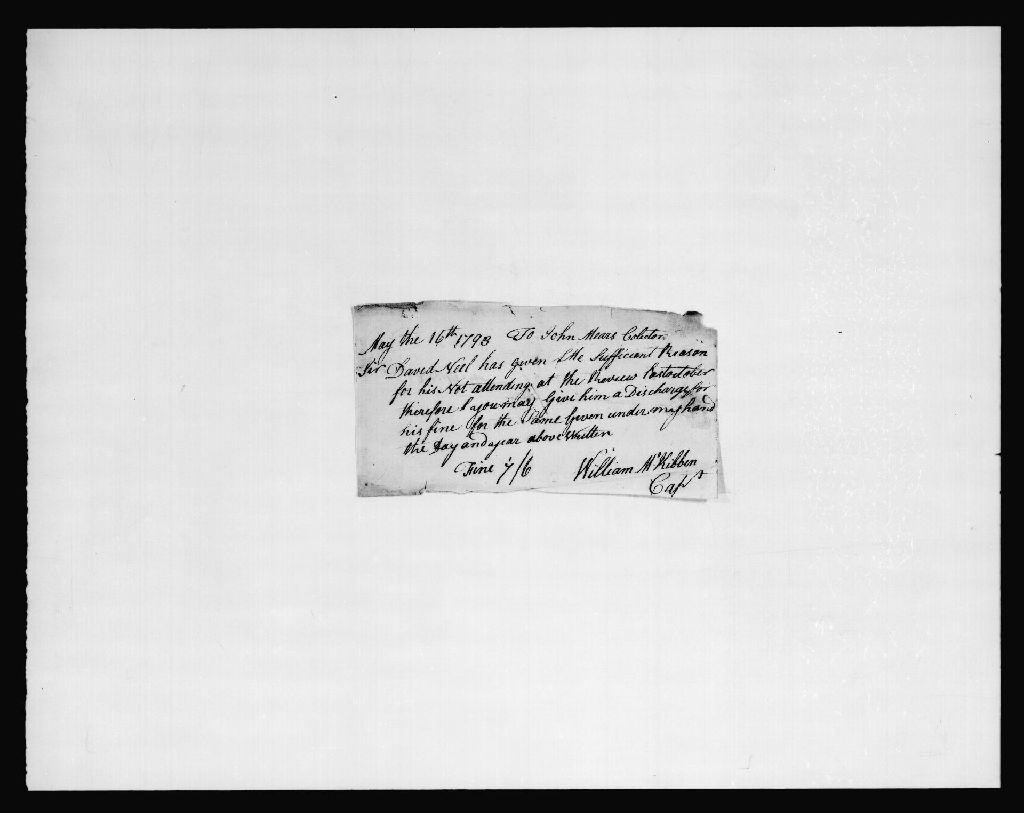 May the 16th 1798 To John Mears Colector
Sir David Neel has given Me Sufficiant Reason
for his Not attending at the Review Last october
therefore you may Give him a Discharge for
his fine for the Same Given under my hand
the Day and year above Written
Fine 7/6 William McKibben
Capt